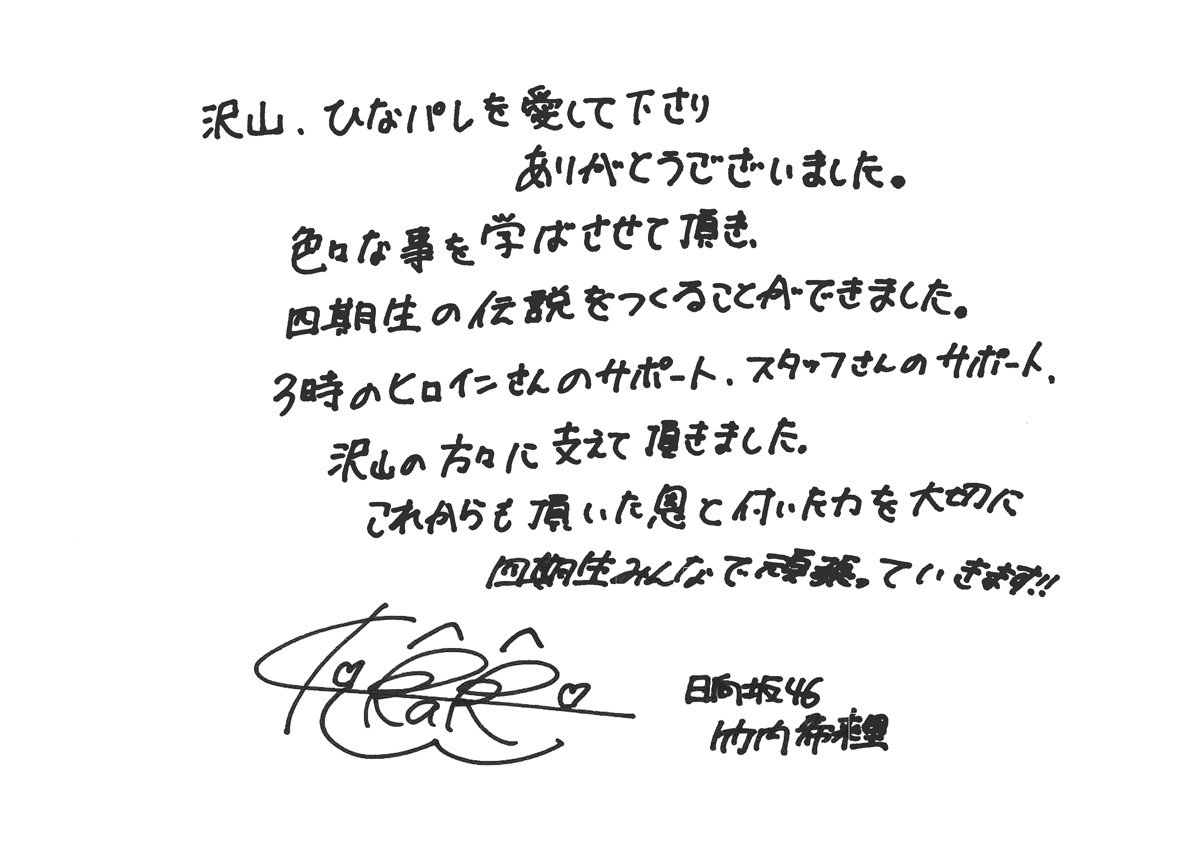 沢山、ひなパレを愛して下さり
ありがとうございました。
色々な事を学ばさせて頂き、
四期生の伝説をつくることができました。
3時のヒロインさんのサポート、スタッフさんのサポート、
沢山の方々に支えて頂きました。
これからも頂いた恩と付いた力を大切に
四期生みんなで頑張っていきます!!
日向坂46
竹内希来里